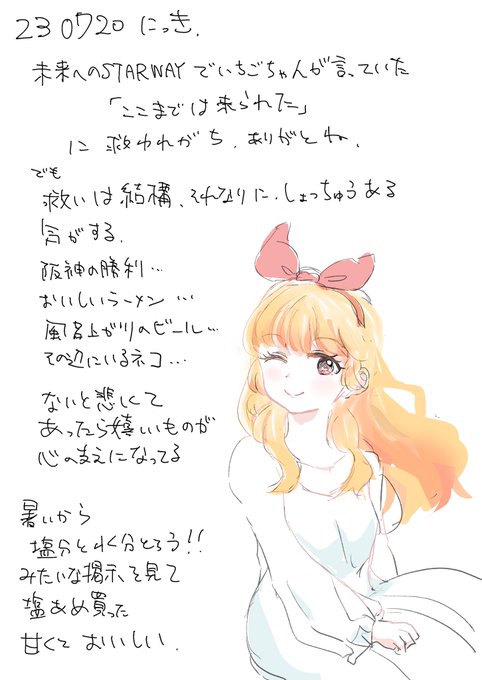 230720 にっき.
未来へのSTARWAY でいちごちゃんが言っていた
「ここまでは来られた」
に 救われがち. ありがとね.
でも
救いは結構、それなりに.しょっちゅうある
気がする.
阪神の勝利…
おいしいラーメン …
風呂上がりのビール…
その辺にいるネコ…
ないと悲しくて
あったら嬉しいものが
心の支えになってる
暑いから
塩分と水分とろう!!
みたいな掲示を見て
塩あめ買った
甘くて おいしい.